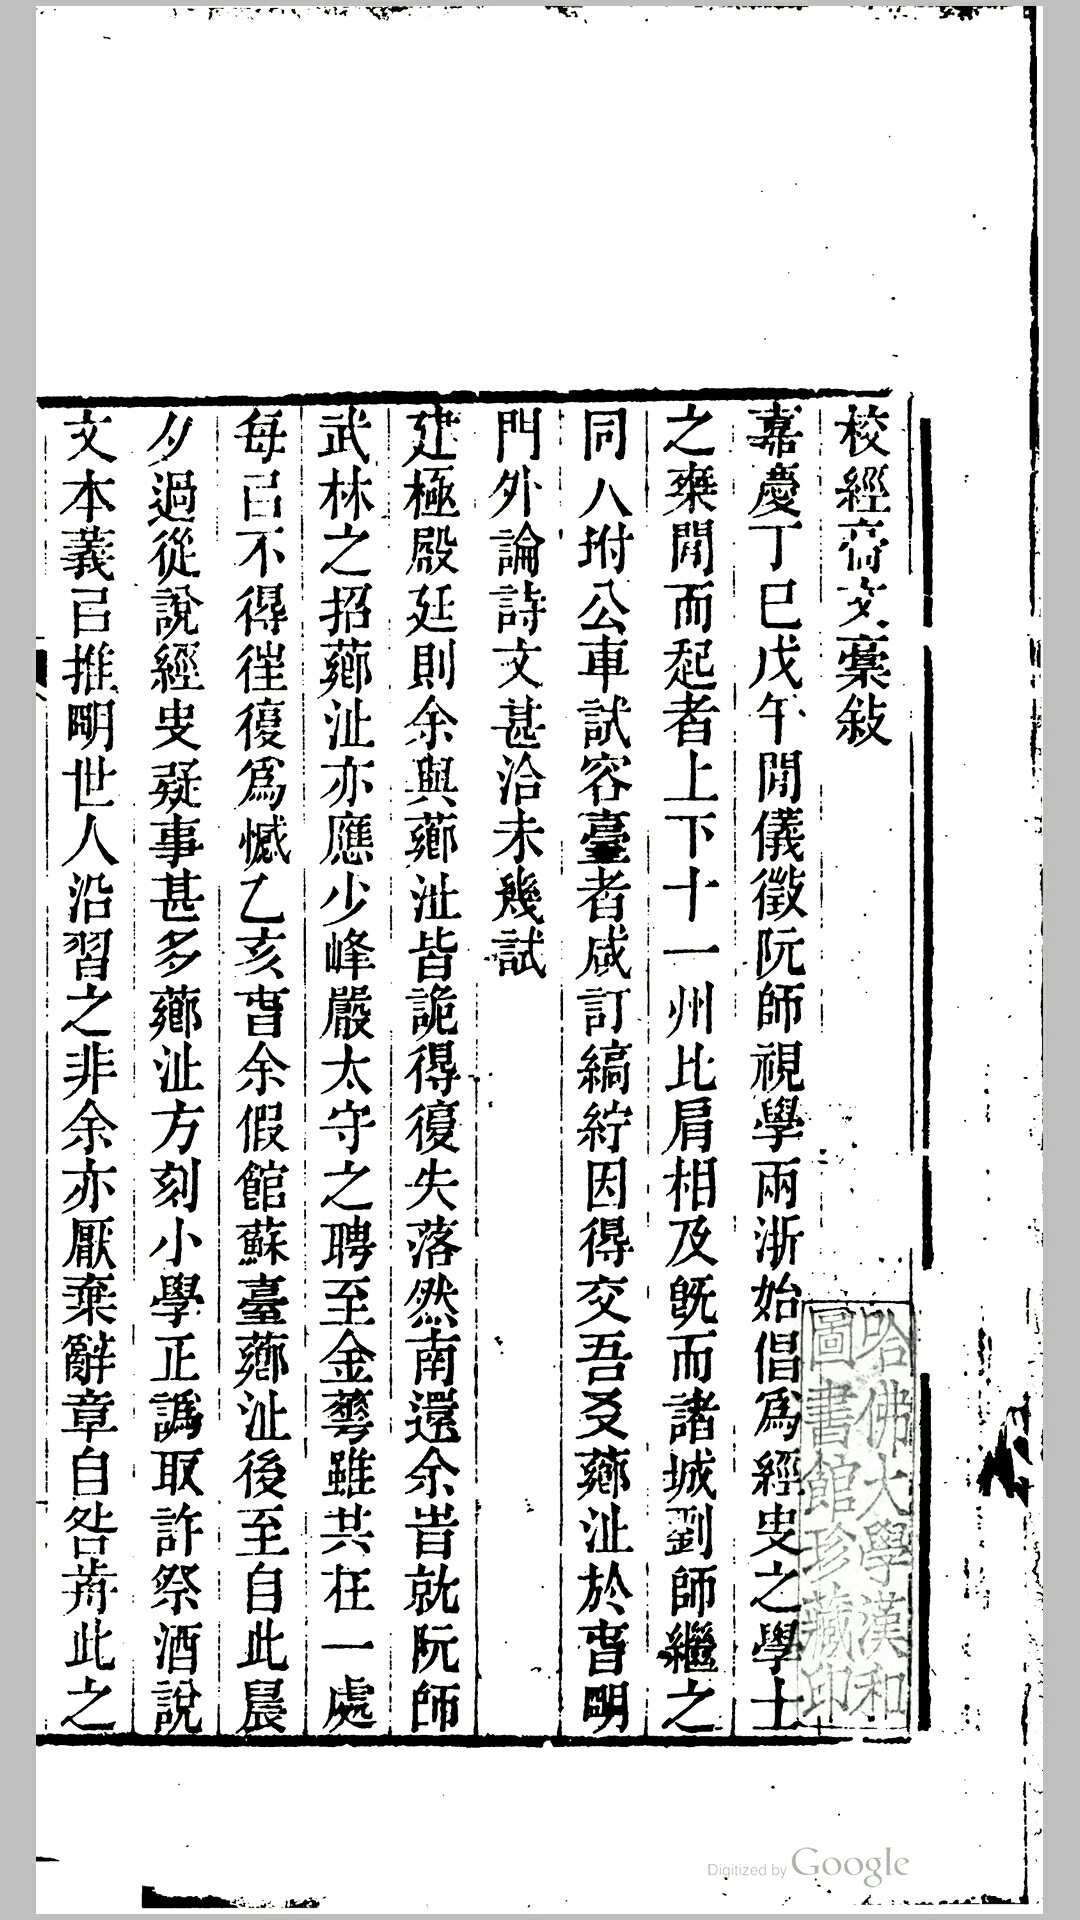 校經齋文稾敍
嘉慶丁巳戊午閒儀徵阮師視學兩浙始倡爲經史之學士
之乘閒而起者上下十一州比肩相及旣而諸城劉師繼之
同人坿公車試容臺者咸訂縞紵因得交吾友薌沚於曺明
門外論詩文甚洽未幾試
建極殿廷則余與薌沚皆詭得復失落然南還余昔就阮師
武林之招薌沚亦應少峰嚴太守之聘至金華雖共在一處
每㠯不得徃復爲憾乙亥曺余假館蘇臺薌沚後至自此晨
夕過從說經史疑事甚多薌沚方刻小學正譌取許祭酒說
文本義㠯推明世人沿習之非余亦厭棄辭章自咎前此之
哈佛大學漢和
圖書館珍藏印
Digitized by Google